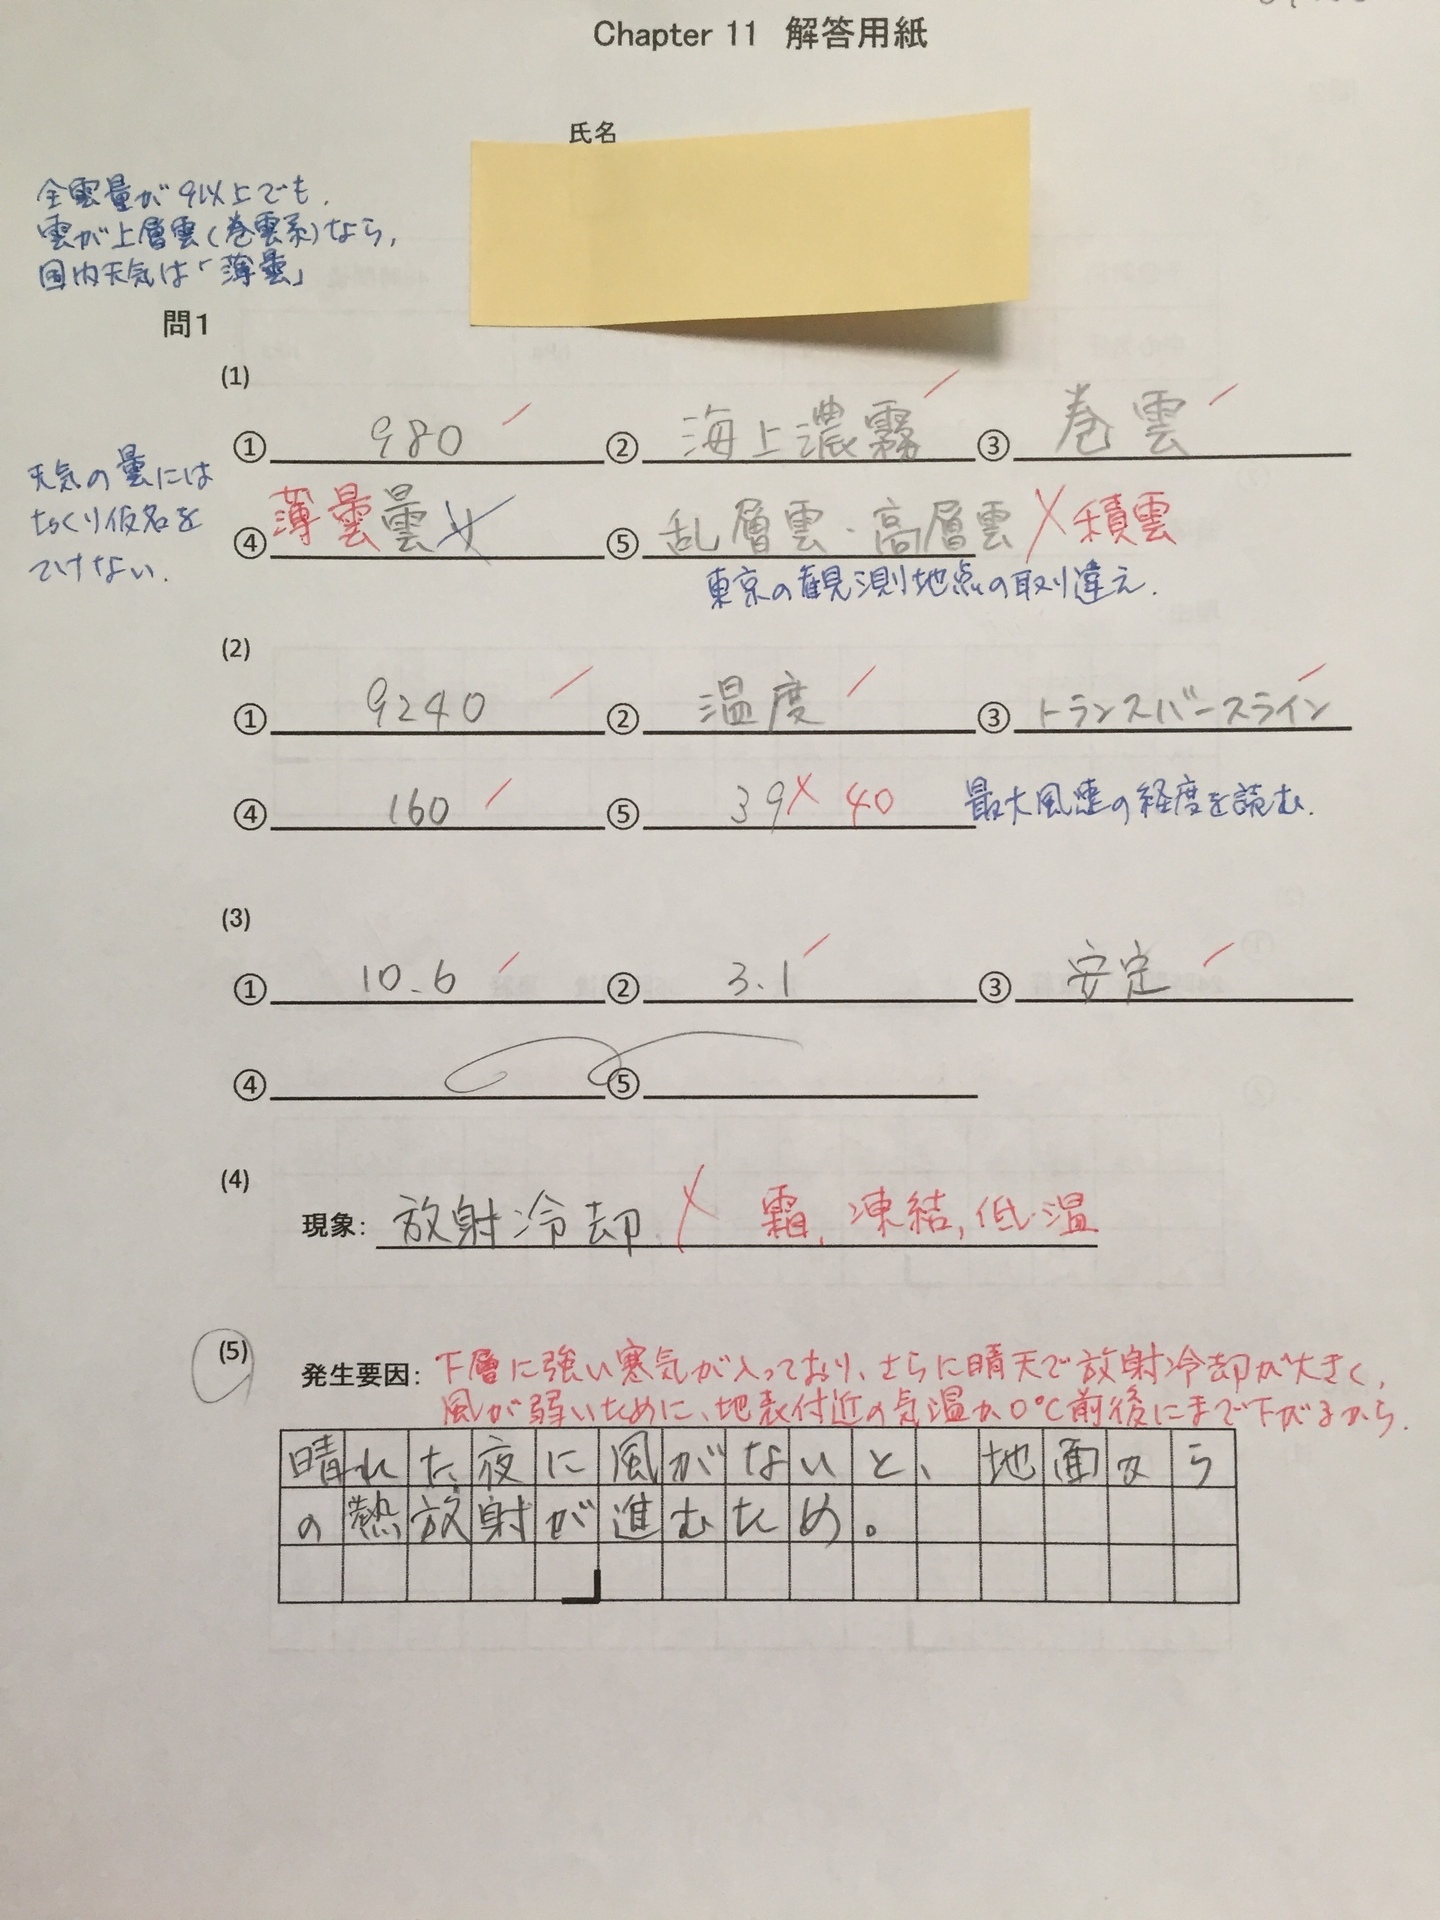 Chapter 11 解答用紙
氏名
全雲量が9以上でも、
雲が上層雲(巻雲系)なら、
国内天気は「薄曇」
問1
(1)
① 980 ② 海上濃霧 ③ 巻雲
天気の曇には
おくり仮名を
つけない.
④ 薄曇 曇 ⑤ 乱層雲・高層雲 積雲
東京の観測地点の取り違え.
(2)
① 9240 ② 温度 ③ トランスバースライン
④ 160 ⑤ 39 40 最大風速の経度を読む.
(3)
① 10.6 ② 3.1 ③ 安定
④ ⑤
(4)
現象: 放射冷却 霜, 凍結, 低温
(5)
発生要因: 下層に強い寒気が入っており、さらに晴天で放射冷却が大きく、
風が弱いために、地表付近の気温が0℃前後にまで下がるから.
晴れた夜に風がないと、地面から
の熱放射が進むため。